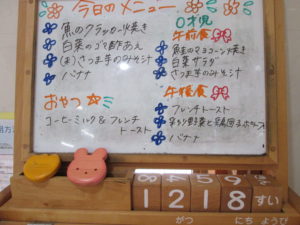 今日のメニュー
魚のクラッカー焼き
白菜のゴマ酢あえ
(お)さつま芋のみそ汁
バナナ
おやつ
コーヒーミルク&フレンチ
トースト
0才児
午前食
鮭のマヨコーン焼き
白菜サラダ
さつま芋のみそ汁
午後食
フレンチトースト
バナナ
1 2 1 8 すい
がつ にち ようび